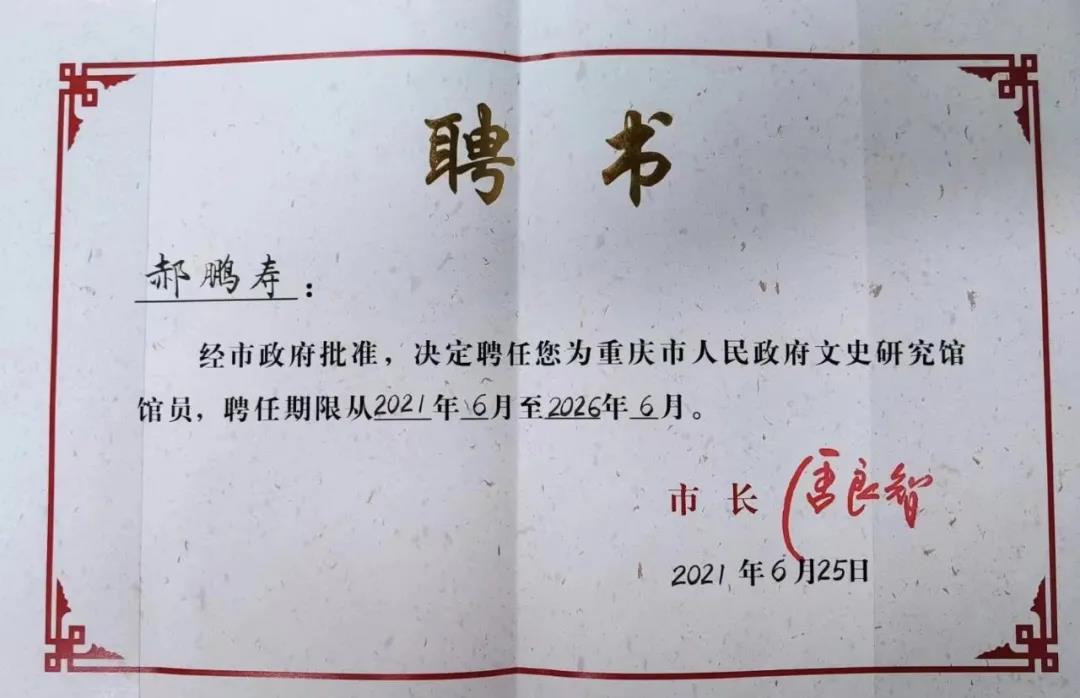 聘书
郝鹏寿：
经市政府批准，决定聘任您为重庆市人民政府文史研究馆
馆员，聘任期限从2021年6月至2026年6月。
市长 唐良智
2021年6月25日